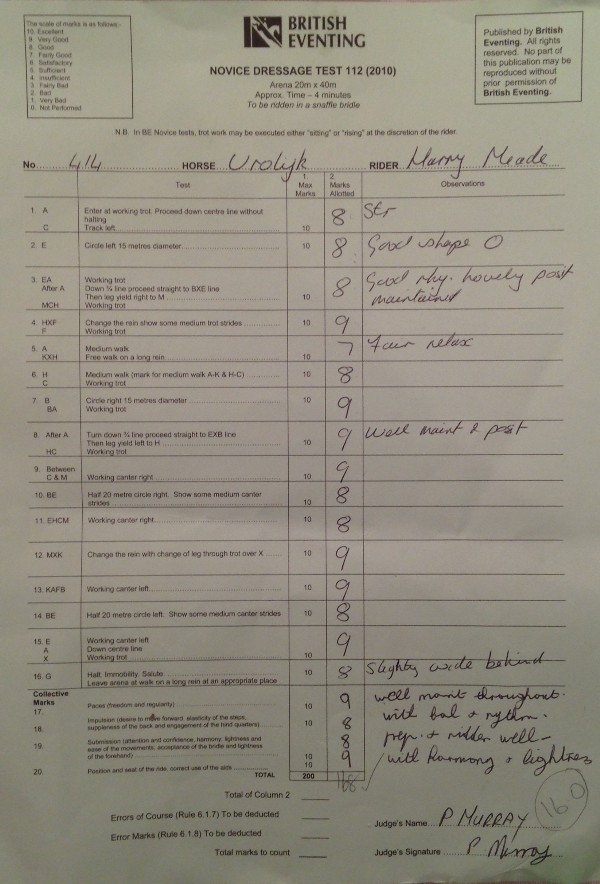 The scale of marks is as follows:-
10. Excellent
9. Very Good
8. Good
7. Fairly Good
6. Satisfactory
5. Sufficient
4. Insufficient
3. Fairly Bad
2. Bad
1. Very Bad
0. Not Performed
BRITISH
EVENTING
Published by British
Eventing. All rights
reserved. No part of
this publication may be
reproduced without
prior permission of
British Eventing.
NOVICE DRESSAGE TEST 112 (2010)
Arena 20m x 40m
Approx. Time – 4 minutes
To be ridden in a snaffle bridle
N.B. In BE Novice tests, trot work may be executed either "sitting" or "rising" at the discretion of the rider.
No 414 HORSE Urolijk RIDER Harry Meade
Test 1. Max Marks 2. Marks Allotted Observations
1. A Enter at working trot. Proceed down centre line without
halting
C Track left 10 8 Str
2. E Circle left 15 metres diameter 10 8 Good shape O
3. EA Working trot
After A Down ¼ line proceed straight to BXE line
Then leg yield right to M 10 8 Good rhy. lovely posit
MCH Working trot maintained
4. HXF Change the rein show some medium trot strides 10 9
F Working trot
5. A Medium walk
KXH Free walk on a long rein 10 7 Fair relax
6. H Medium walk (mark for medium walk A-K & H-C) 10 8
C Working trot
7. B Circle right 15 metres diameter 10 9
BA Working trot
8. After A Turn down ¾ line proceed straight to EXB line
Then leg yield left to H 10 9 Well maint & posit
HC Working trot
9. Between
C & M Working canter right 10 9
10. BE Half 20 metre circle right. Show some medium canter
strides 10 8
11. EHCM Working canter right 10 8
12. MXK Change the rein with change of leg through trot over X 10 9
13. KAFB Working canter left 10 9
14. BE Half 20 metre circle left. Show some medium canter strides 10 8
15. E Working canter left
A Down centre line
X Working trot 10 9
16. G Halt. Immobility. Salute 10 8 Slightly wide behind
Leave arena at walk on a long rein at an appropriate place
Collective
Marks
17. Paces (freedom and regularity) 10 9 well maint throughout.
18. Impulsion (desire to move forward, elasticity of the steps,
suppleness of the back and engagement of the hind quarters) 10 8 with bal + rythm.
19. Submission (attention and confidence, harmony, lightness and
ease of the movements, acceptance of the bridle and lightness
of the forehand) 10 8 prep. + ridden well –
20. Position and seat of the rider, correct use of the aids 10 9 with harmony & lightness
TOTAL 200 168
Total of Column 2
160
Errors of Course (Rule 6.1.7) To be deducted
Judge's Name P MURRAY
Error Marks (Rule 6.1.8) To be deducted
Total marks to count
Judge's Signature P Murray